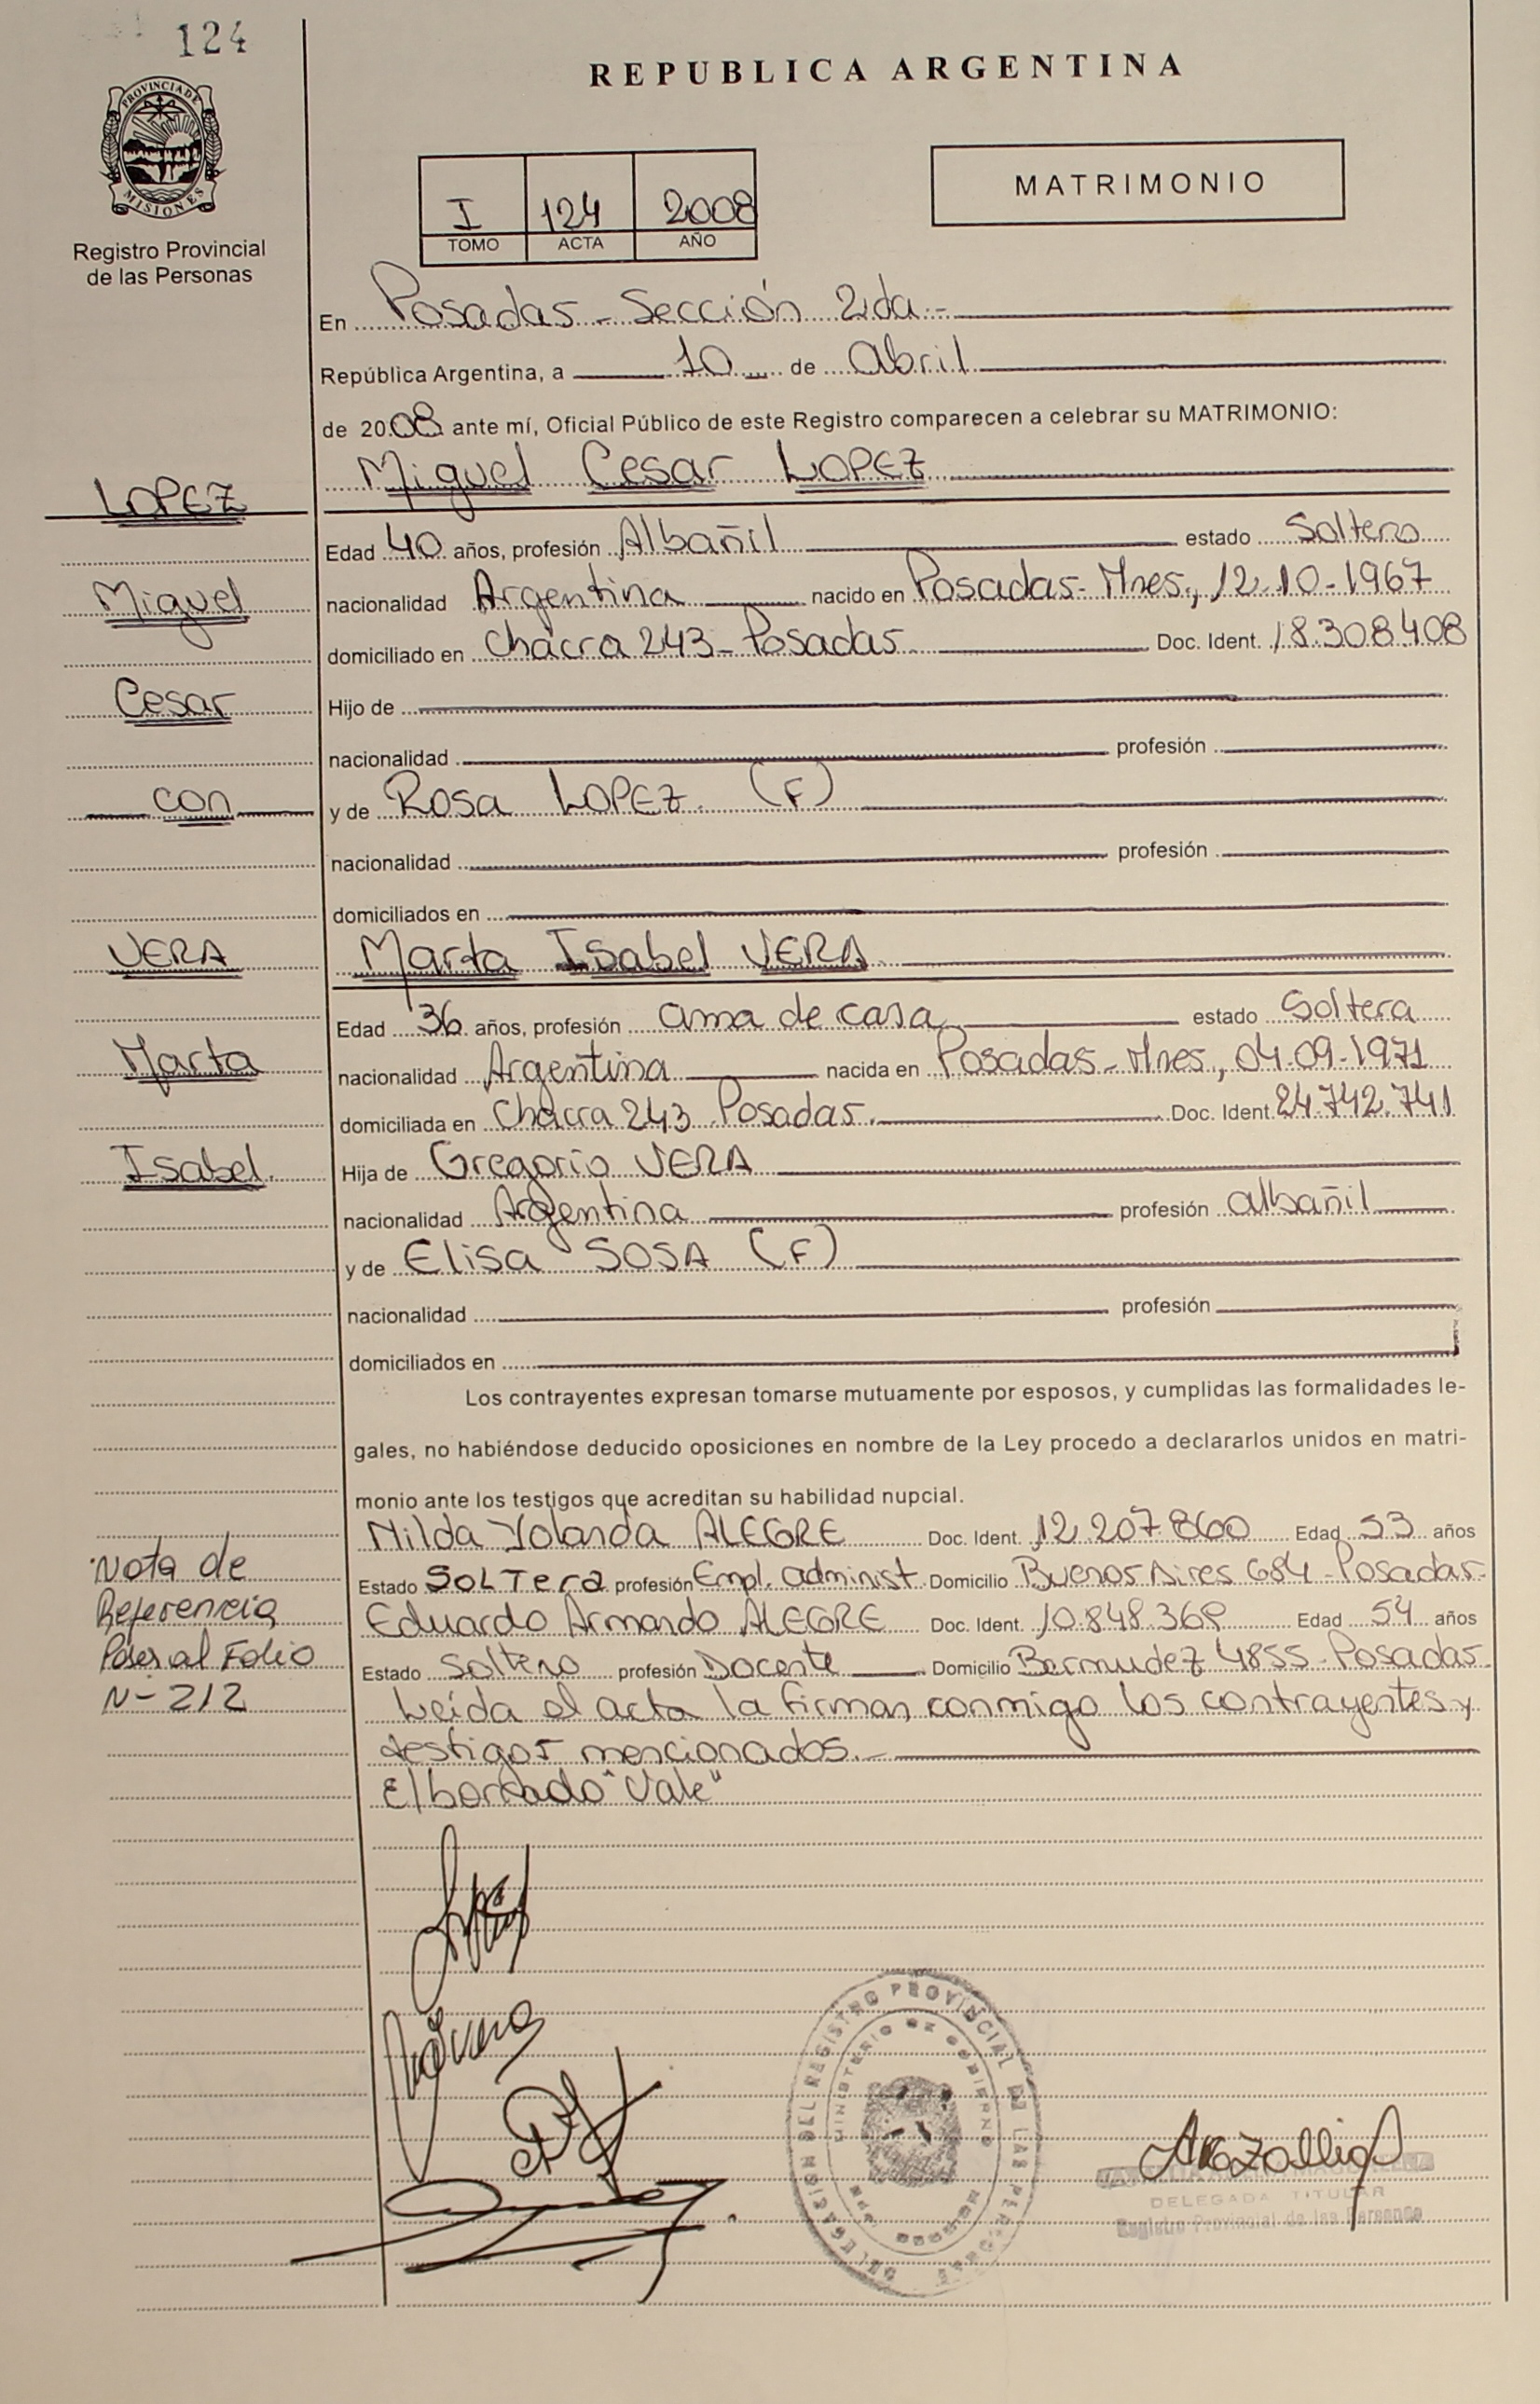 124
PROVINCIA DE
MISIONES
Registro Provincial
de las Personas
REPUBLICA ARGENTINA
I 124 2008
TOMO ACTA AÑO
MATRIMONIO
En Posadas - Sección 2da -
República Argentina, a 10 de Abril
de 2008 ante mí, Oficial Público de este Registro comparecen a celebrar su MATRIMONIO:
LOPEZ
Miguel
Cesar
con
VERA
Marta
Isabel.
Miguel Cesar LOPEZ
Edad 40 años, profesión Albañil estado Soltero
nacionalidad Argentina nacido en Posadas - Mnes, 12-10-1967
domiciliado en Chacra 243 - Posadas Doc. Ident. 18.308.408
Hijo de
nacionalidad profesión
y de Rosa LOPEZ (F)
nacionalidad profesión
domiciliados en
Marta Isabel VERA
Edad 36 años, profesión ama de casa estado Soltera
nacionalidad Argentina nacida en Posadas - Mnes, 04-09-1971
domiciliada en Chacra 243 Posadas. Doc. Ident. 24.742.741
Hija de Gregorio VERA
nacionalidad Argentina profesión albañil
y de Elisa SOSA (F)
nacionalidad profesión
domiciliados en
Los contrayentes expresan tomarse mutuamente por esposos, y cumplidas las formalidades le-
gales, no habiéndose deducido oposiciones en nombre de la Ley procedo a declararlos unidos en matri-
monio ante los testigos que acreditan su habilidad nupcial.
Nilda Yolanda ALEGRE Doc. Ident. 12.207.860 Edad 53 años
Estado SOLTera profesión Empl. administ. Domicilio Buenos Aires 684 - Posadas-
Eduardo Armando ALEGRE Doc. Ident. 10.848.369 Edad 54 años
Estado Soltero profesión Docente Domicilio Bermudez 4855 - Posadas
Leída el acta la firman conmigo los contrayentes y
testigos mencionados.-
El borrado "Vale"
Nota de
Referencia
Pase al Folio
N- 212
DELEGACION DEL REGISTRO PROVINCIAL DE LAS PERSONAS
MINISTERIO DE GOBIERNO
DELEGADA TITULAR
Registro Provincial de las Personas